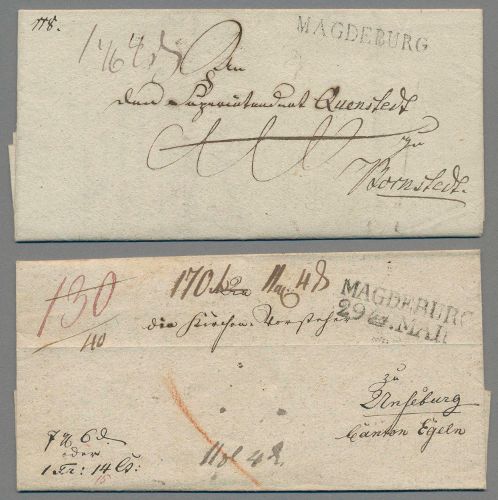 MAGDEBURG
An
den Superintendent Quenstedt
zu
Bornstedt.
130
40
170
MAGDEBURG
29 MAI
die Kirchen-Vorsteher
zu
Unseburg
Canton Egeln
oder
1 Fr: 14 Cs: